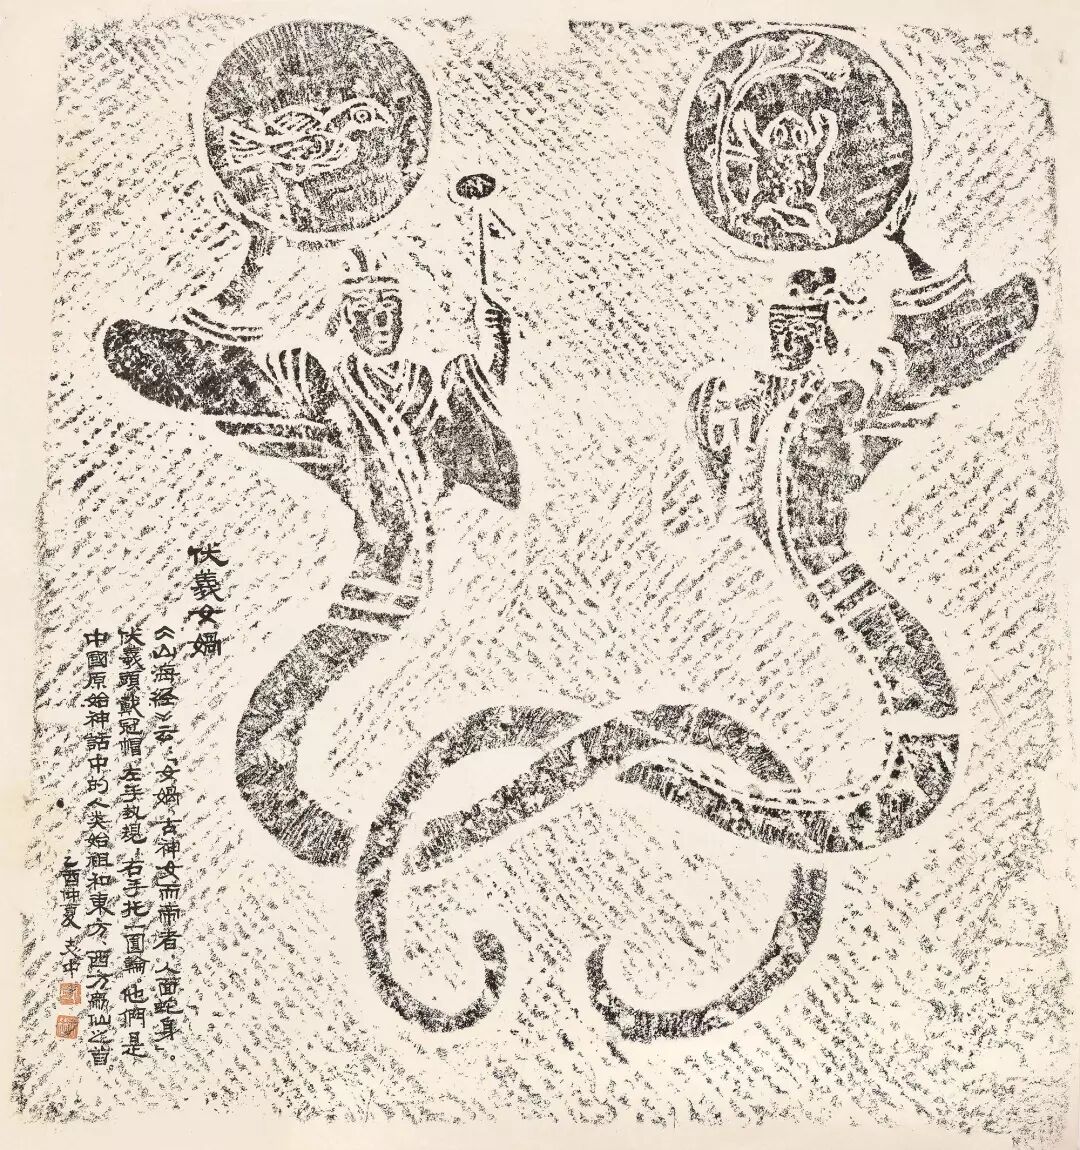 伏羲女媧
《山海经》云：女媧，古神女而帝者，人面蛇身。
伏羲頭戴冠帽，左手执規，右手托一圓輪，他們是
中國原始神話中的人类始祖和東方、西方仙之首。
乙酉仲夏